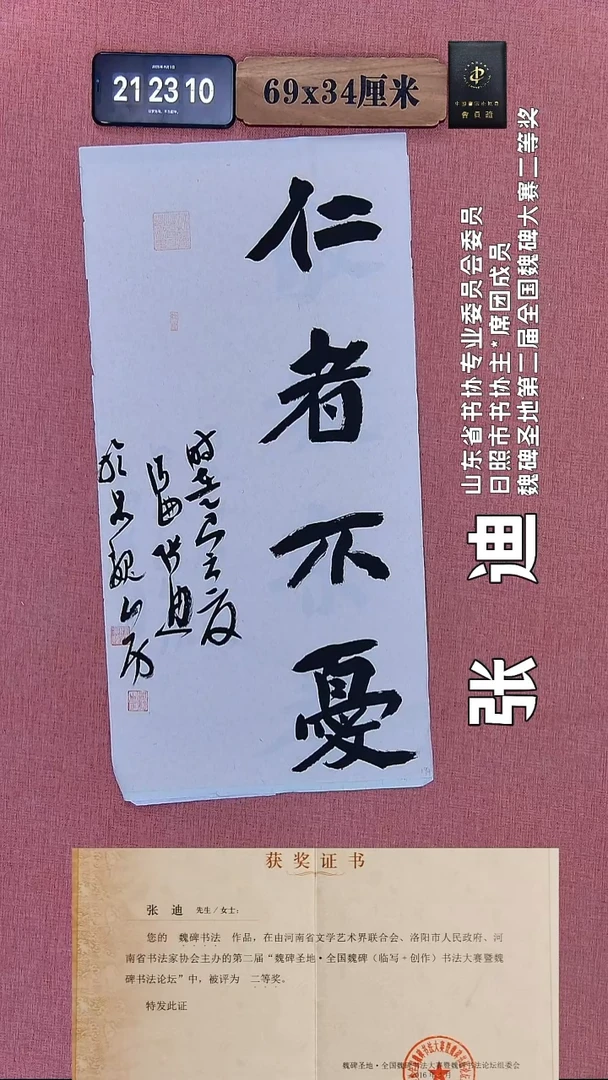 21 23 10
69x34厘米
仁者不憂
山东省书协专业委员会委员
日照市书协主*席团成员
魏碑圣地第二届全国魏碑大赛二等奖
张 迪
获奖证书
张 迪 先生/女士:
您的 魏碑书法 作品，在由河南省文学艺术界联合会、洛阳市人民政府、河
南省书法家协会主办的第二届“魏碑圣地·全国魏碑（临写+创作）书法大赛暨魏
碑书法论坛”中，被评为 二等奖。
特发此证
魏碑圣地·全国魏碑书法大赛暨魏碑书法论坛组委会